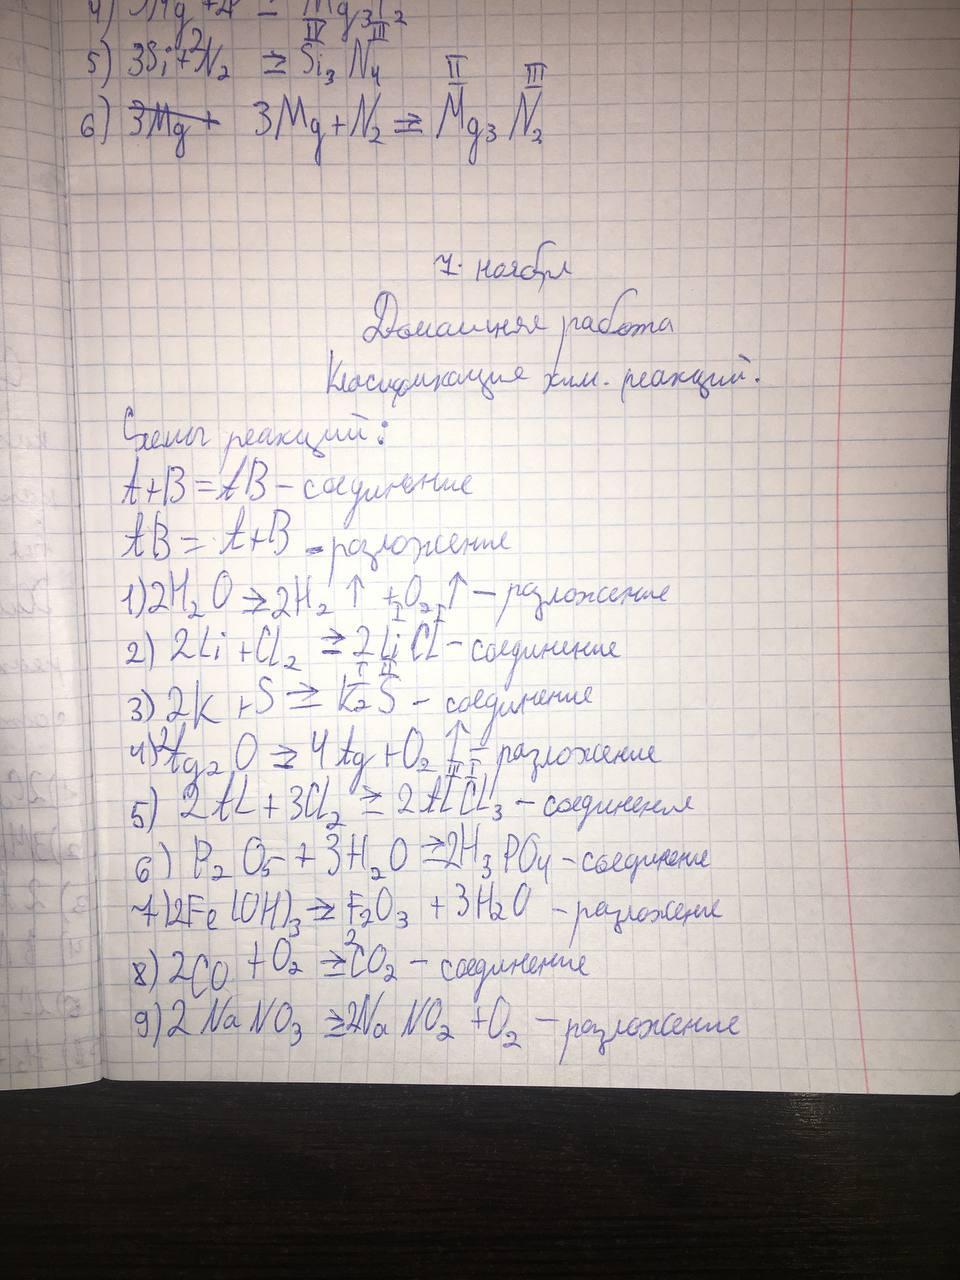 5) 3Si + 2N₂ ⇒ Si₃N₄
IV III
6) 3Mg + 3Mg + N₂ ⇒ Mg₃N₂
II III
7 ноября
Домашняя работа
Класификация хим. реакций.
Схемы реакций:
A+B = AB – соединение
AB = A+B – разложение
1) 2H₂O ⇒ 2H₂ ↑ + O₂ ↑ – разложение
I I
2) 2Li + Cl₂ ⇒ 2LiCl – соединение
I II
3) 2K + S ⇒ K₂S – соединение
4) 2Ag₂O ⇒ 4Ag + O₂ ↑ – разложение
III I
5) 2Al + 3Cl₂ ⇒ 2AlCl₃ – соединения
6) P₂O₅ + 3H₂O ⇒ 2H₃PO₄ – соединение
7) 2Fe(OH)₃ ⇒ F₂O₃ + 3H₂O – разложение
8) 2CO + O₂ ⇒ 2CO₂ – соединение
9) 2NaNO₃ ⇒ 2NaNO₂ + O₂ – разложение